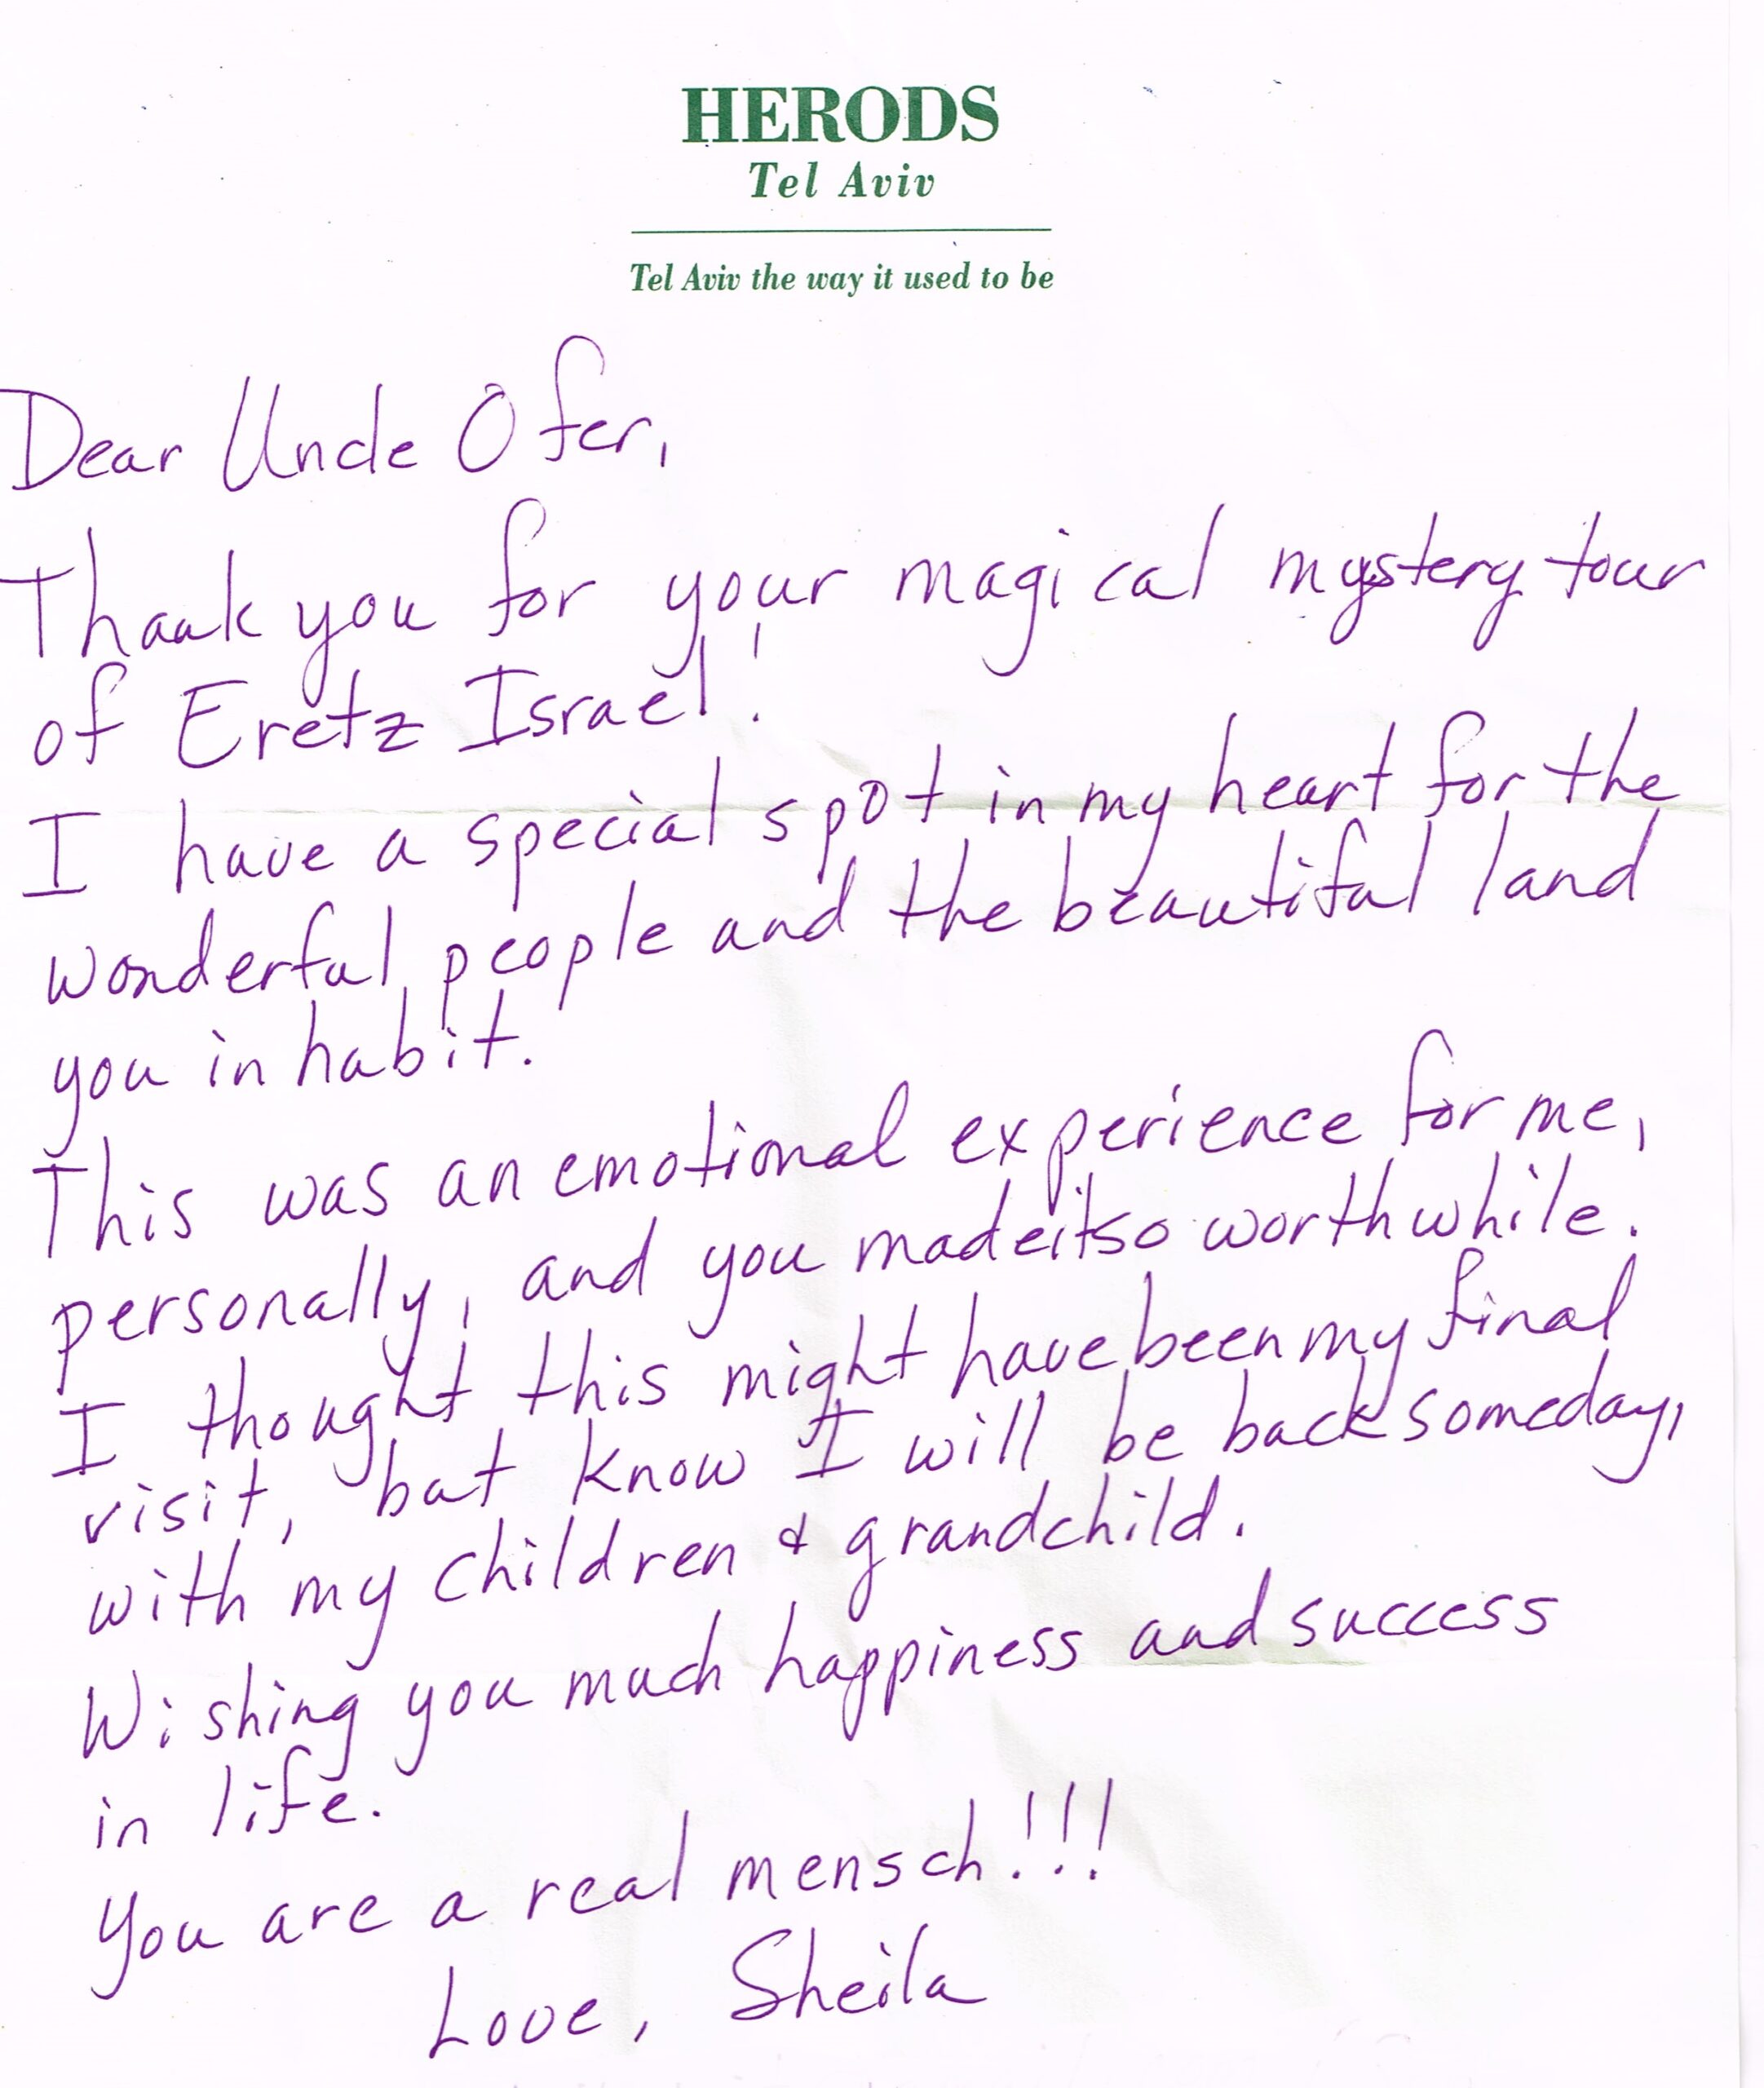 HERODS
Tel Aviv
Tel Aviv the way it used to be
Dear Uncle Ofer,
Thank you for your magical mystery tour
of Eretz Israel!
I have a special spot in my heart for the
wonderful people and the beautiful land
you inhabit.
This was an emotional experience for me,
personally, and you made it so worthwhile.
I thought this might have been my final
visit, but know I will be back someday,
with my children & grandchild.
Wishing you much happiness and success
in life.
You are a real mensch!!!
Love, Sheila